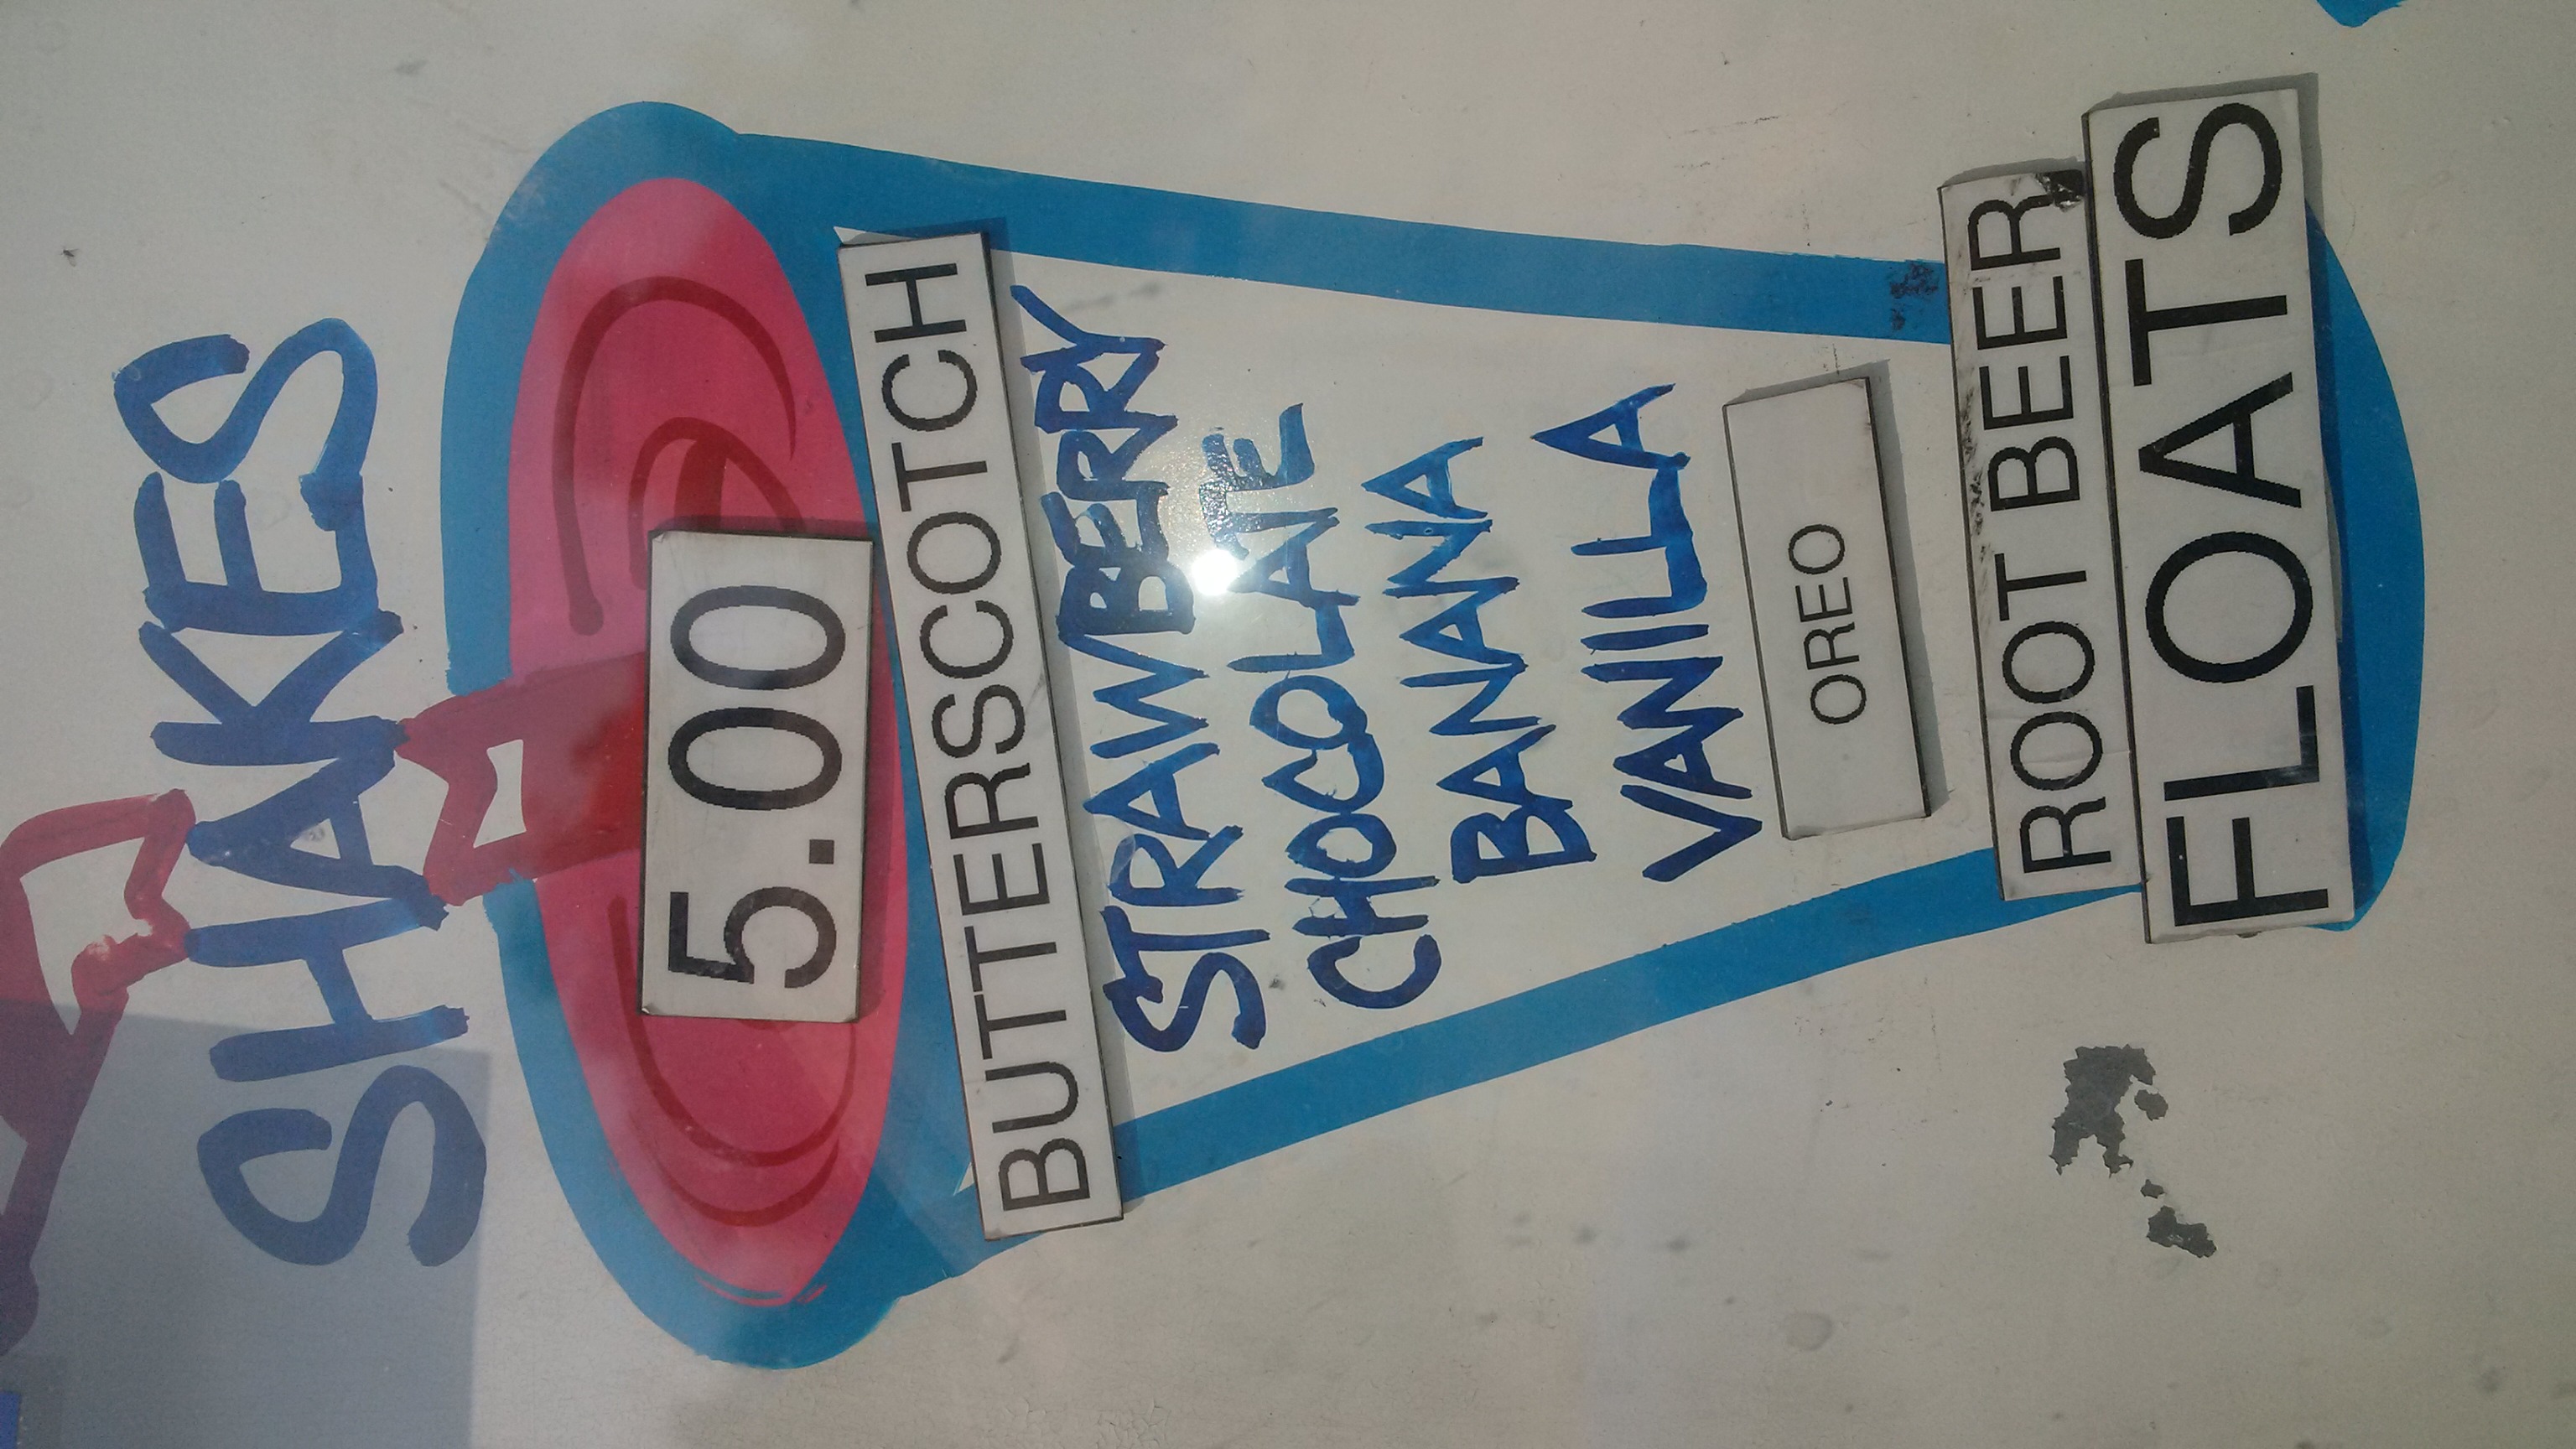 SHAKES
5.00
BUTTERSCOTCH
STRAWBERRY
CHOCOLATE
BANANA
VANILLA
OREO
ROOT BEER
FLOATS